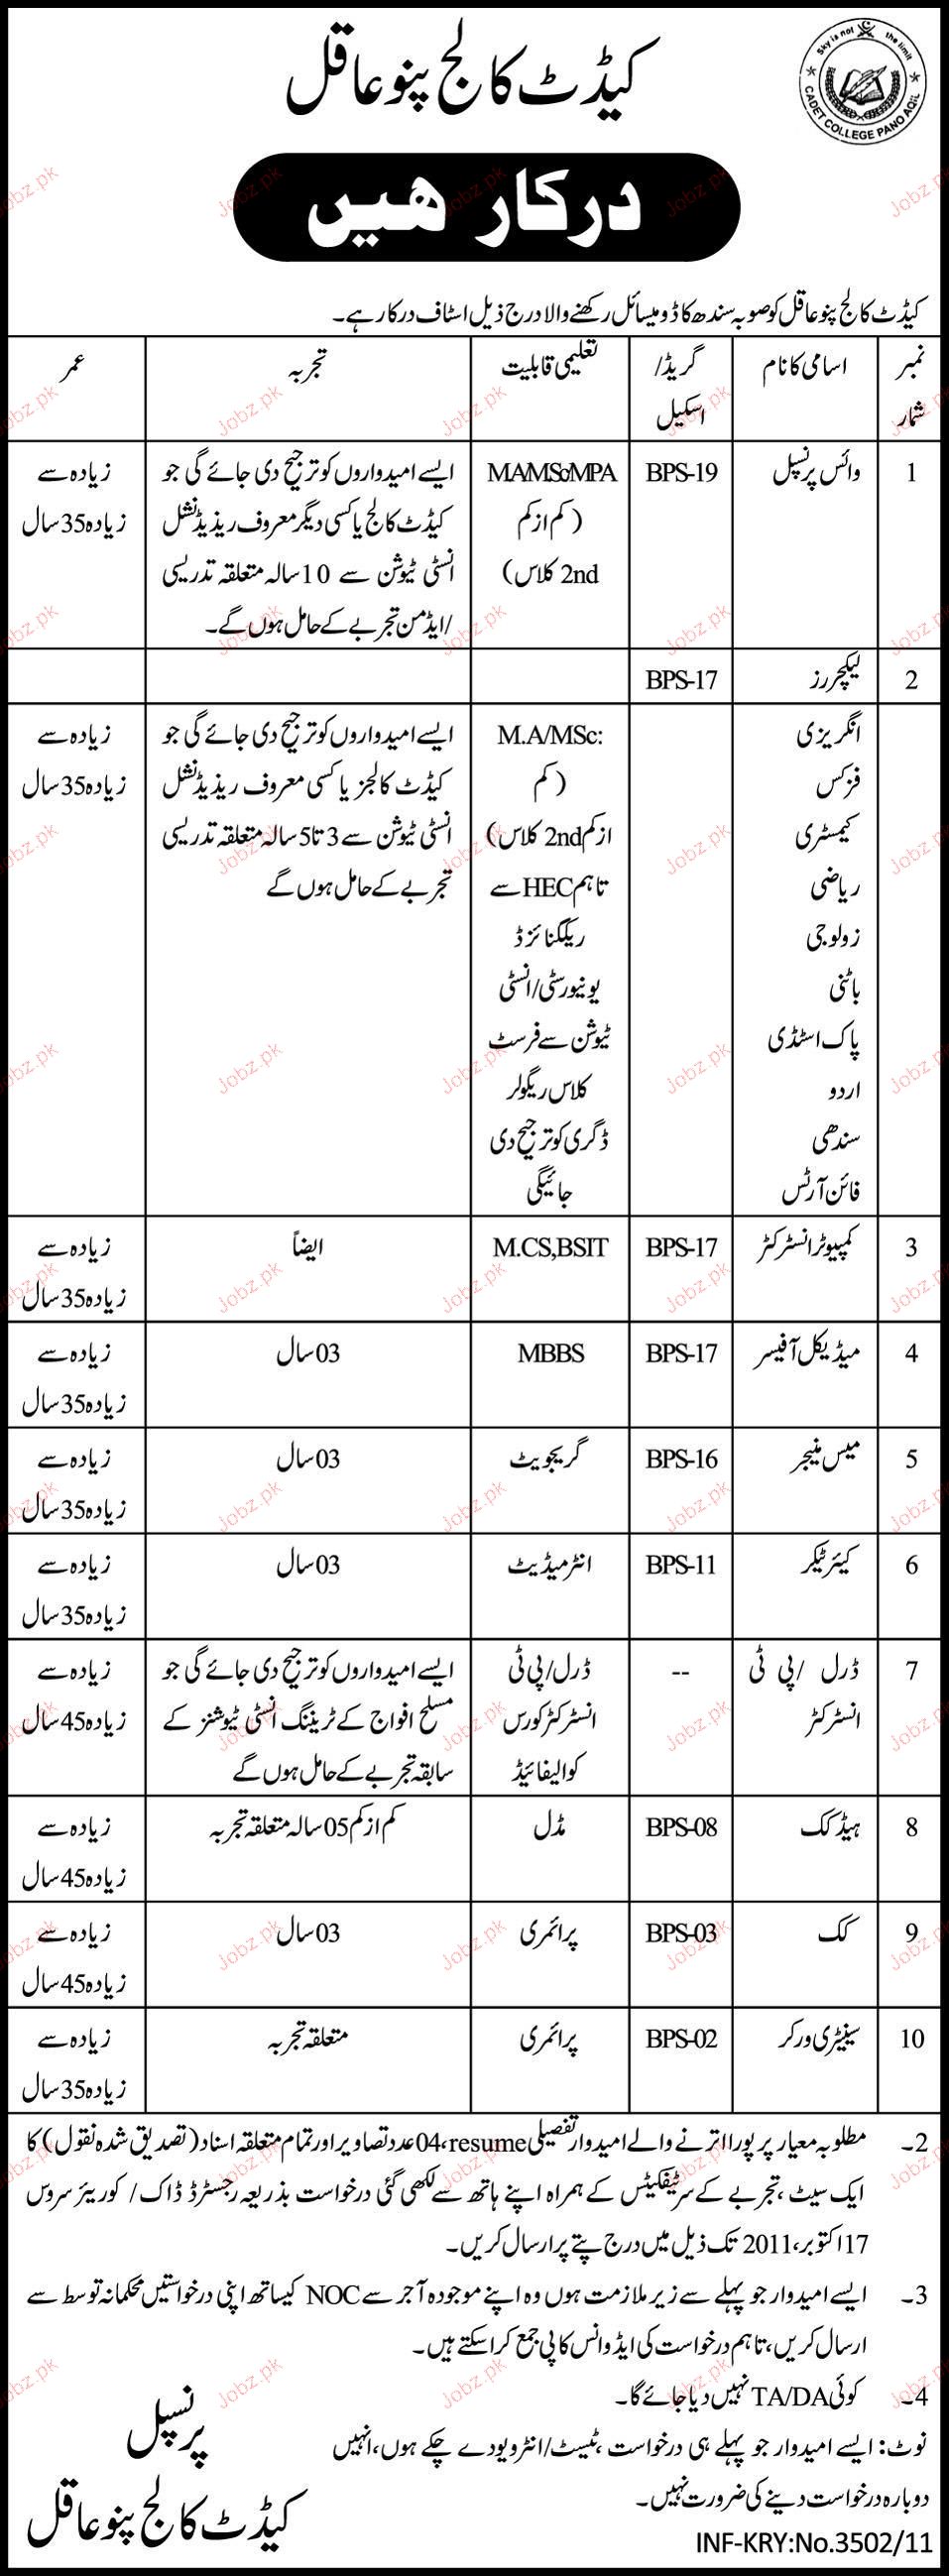 کیڈٹ کالج پنوعاقل
Sky is not the limit
CADET COLLEGE PANO AQIL
درکار ھیں
کیڈٹ کالج پنوعاقل کو صوبہ سندھ کا ڈومیسائل رکھنے والا درج ذیل اسٹاف درکار ہے۔
نمبر شمار
اسامی کا نام
گریڈ/ اسکیل
تعلیمی قابلیت
تجربہ
عمر
1
وائس پرنسپل
BPS-19
M.A/M.Sc/MPA
(کم از کم
2nd کلاس)
ایسے امیدواروں کو ترجیح دی جائے گی جو
کیڈٹ کالج یا کسی دیگر معروف ریذیڈنشل
انسٹی ٹیوشن سے 10 سالہ متعلقہ تدریسی
/ایڈمن تجربے کے حامل ہوں گے۔
زیادہ سے
زیادہ 35 سال
2
لیکچررز
BPS-17
انگریزی
فزکس
کیمسٹری
ریاضی
زولوجی
باٹنی
پاک اسٹڈی
اردو
سندھی
فائن آرٹس
M.A/MSc:
(کم
از کم 2nd کلاس)
تاہم HEC سے
ریکگنائزڈ
یونیورسٹی/انسٹی
ٹیوشن سے فرسٹ
کلاس ریگولر
ڈگری کو ترجیح دی
جائیگی
ایسے امیدواروں کو ترجیح دی جائے گی جو
کیڈٹ کالجز یا کسی معروف ریذیڈنشل
انسٹی ٹیوشن سے 3 تا 5 سالہ متعلقہ تدریسی
تجربے کے حامل ہوں گے
زیادہ سے
زیادہ 35 سال
3
کمپیوٹر انسٹرکٹر
BPS-17
M.CS,BSIT
ایضاً
زیادہ سے
زیادہ 35 سال
4
میڈیکل آفیسر
BPS-17
MBBS
03 سال
زیادہ سے
زیادہ 35 سال
5
میس منیجر
BPS-16
گریجویٹ
03 سال
زیادہ سے
زیادہ 35 سال
6
کیئر ٹیکر
BPS-11
انٹرمیڈیٹ
03 سال
زیادہ سے
زیادہ 35 سال
7
ڈرل / پی ٹی
انسٹرکٹر
--
ڈرل/پی ٹی
انسٹرکٹر کورس
کوالیفائیڈ
ایسے امیدواروں کو ترجیح دی جائے گی جو
مسلح افواج کے ٹریننگ انسٹی ٹیوشنز کے
سابقہ تجربے کے حامل ہوں گے
زیادہ سے
زیادہ 45 سال
8
ہیڈ کک
BPS-08
مڈل
کم از کم 05 سالہ متعلقہ تجربہ
زیادہ سے
زیادہ 45 سال
9
کک
BPS-03
پرائمری
03 سال
زیادہ سے
زیادہ 45 سال
10
سینیٹری ورکر
BPS-02
پرائمری
متعلقہ تجربہ
زیادہ سے
زیادہ 35 سال
2۔ مطلوبہ معیار پر پورا اترنے والے امیدوار تفصیلی resume، 04 عدد تصاویر اور تمام متعلقہ اسناد (تصدیق شدہ نقول) کا
ایک سیٹ، تجربے کے سرٹیفکیٹس کے ہمراہ اپنے ہاتھ سے لکھی گئی درخواست بذریعہ رجسٹرڈ ڈاک / کوریئر سروس
17 اکتوبر، 2011 تک ذیل میں درج پتے پر ارسال کریں۔
3۔ ایسے امیدوار جو پہلے سے زیر ملازمت ہوں وہ اپنے موجودہ آجر سے NOC کیساتھ اپنی درخواستیں محکمانہ توسط سے
ارسال کریں، تاہم درخواست کی ایڈوانس کاپی جمع کراسکتے ہیں۔
4۔ کوئی TA/DA نہیں دیا جائے گا۔
نوٹ: ایسے امیدوار جو پہلے ہی درخواست، ٹیسٹ/انٹرویو دے چکے ہوں، انہیں
دوبارہ درخواست دینے کی ضرورت نہیں۔
پرنسپل
کیڈٹ کالج پنوعاقل
INF-KRY:No.3502/11
Jobz.pk